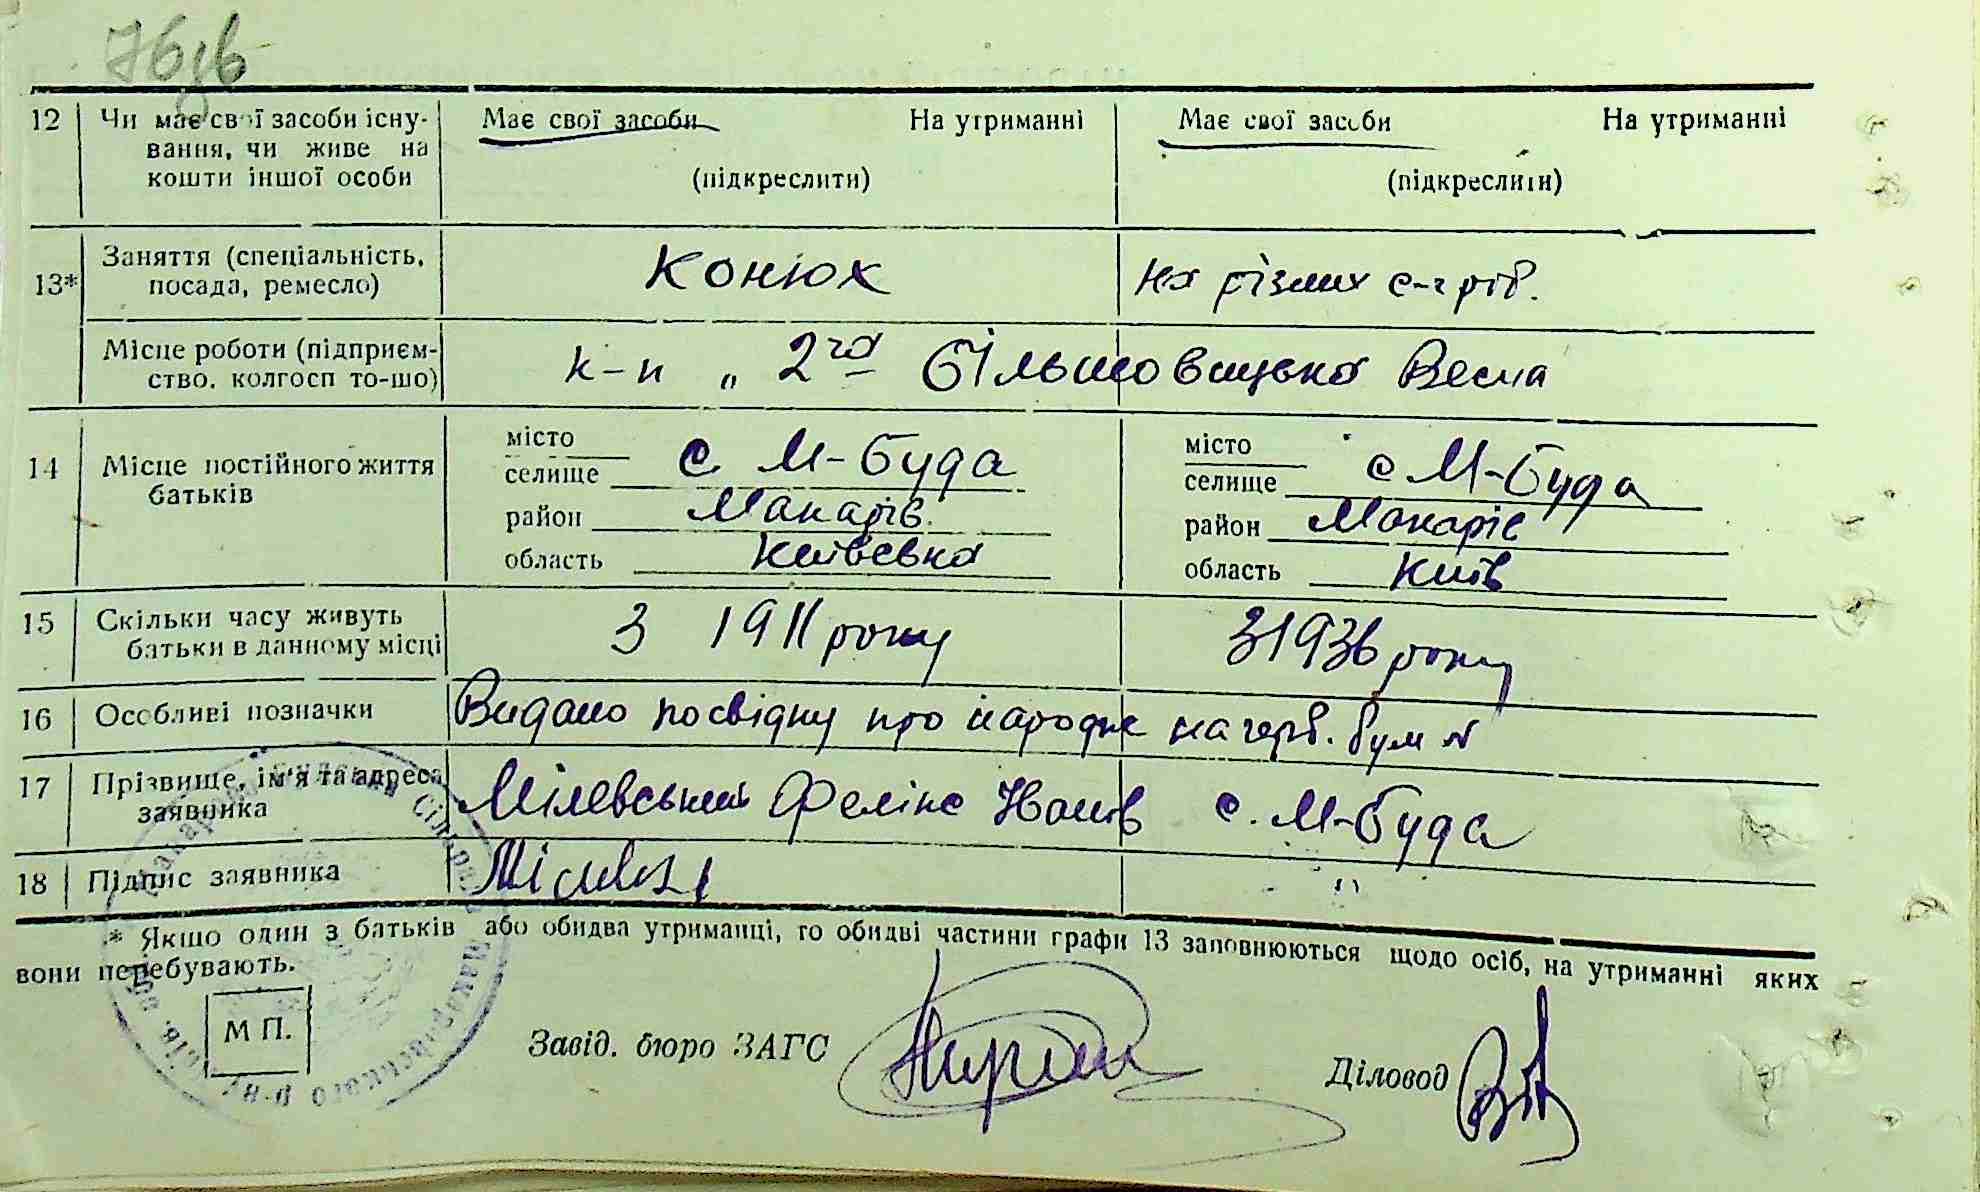 76зв
12 Чи має свої засоби існу- Має свої засоби На утриманні Має свої засоби На утриманні
вання, чи живе на
кошти іншої особи (підкреслити) (підкреслити)
13* Заняття (спеціальність, Конюх на різних с-г роб.
посада, ремесло)
Місце роботи (підприєм- к-п „ 2га Більшовицька Весна
ство. колгосп то-що)
14 Місце постійного життя місто с. М-Буда місто с М-Буда
батьків селище селище
район Макарів. район Макарів
область Київсвка область Київ
15 Скільки часу живуть З 1911 року З 1936 року
батьки в данному місці
16 Особливі позначки Видано посвідку про народж на герб. бум №
17 Прізвище, ім'я та адреса Мілевський Фелікс Іванів с. М-Буда
заявника
18 Підпис заявника
* Якщо один з батьків або обидва утриманці, то обидві частини графи 13 заповнюються щодо осіб, на утриманні яких
вони перебувають.
М П. Завід. бюро ЗАГС Діловод